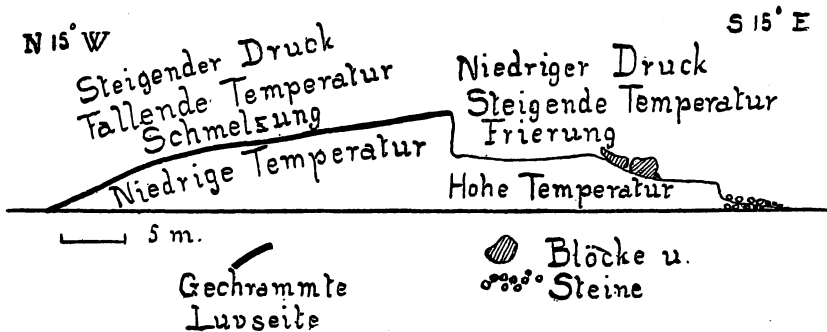 N 15° W
S 15° E
Steigender Druck
Fallende Temperatur
Schmelzung
Niedrige Temperatur
Niedriger Druck
Steigende Temperatur
Frierung
Hohe Temperatur
5 m.
Gechrammte
Luvseite
Blöcke u.
Steine